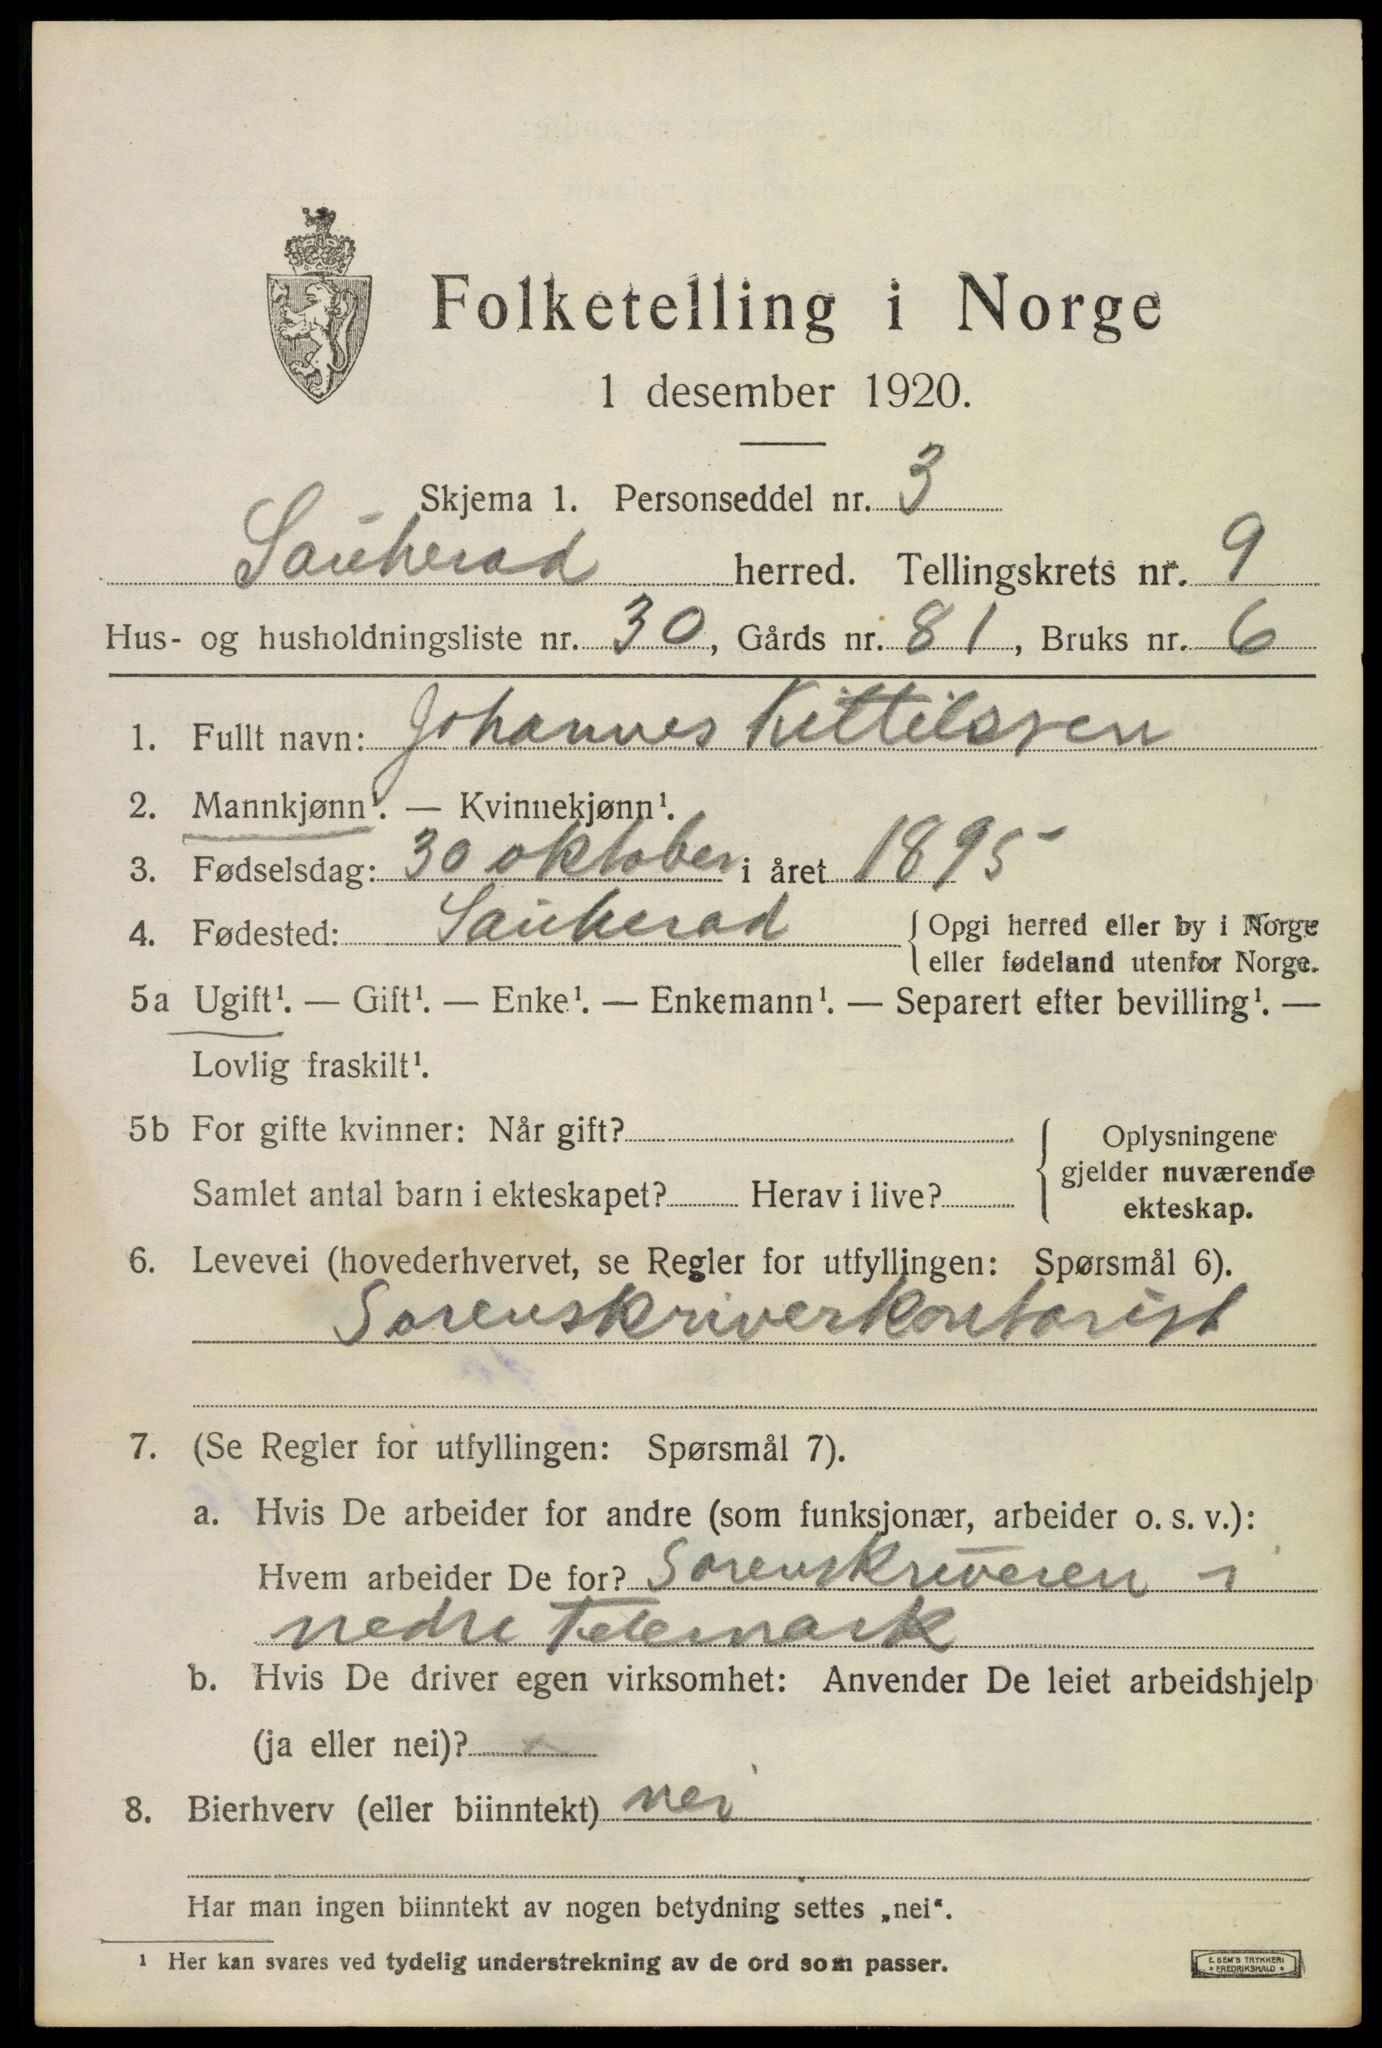 Folketelling i Norge
1 desember 1920.
Skjema 1. Personseddel nr. 3
Sauherad herred. Tellingskrets nr. 9
Hus- og husholdningsliste nr. 30, Gårds nr. 81, Bruks nr. 6
1. Fullt navn: Johannes Kittilsen
2. Mannkjønn¹. — Kvinnekjønn¹.
3. Fødselsdag: 30 oktober i året 1895
4. Fødested: Sauherad { Opgi herred eller by i Norge
eller fødeland utenfor Norge.
5a Ugift¹. — Gift¹. — Enke¹. — Enkemann¹. — Separert efter bevilling¹. —
Lovlig fraskilt¹.
5b For gifte kvinner: Når gift?
Samlet antal barn i ekteskapet? Herav i live?
Oplysningene
gjelder nuværende
ekteskap.
6. Levevei (hovederhvervet, se Regler for utfyllingen: Spørsmål 6).
Sorenskriverkontorist
7. (Se Regler for utfyllingen: Spørsmål 7).
a. Hvis De arbeider for andre (som funksjonær, arbeider o. s. v.):
Hvem arbeider De for? Sorenskriveren i
nedre Telemark
b. Hvis De driver egen virksomhet: Anvender De leiet arbeidshjelp
(ja eller nei)?
8. Bierhverv (eller biinntekt) nei
Har man ingen biinntekt av nogen betydning settes „nei“.
¹ Her kan svares ved tydelig understrekning av de ord som passer.
E. SEM'S TRYKKERI
* FREDRIKSHALD *